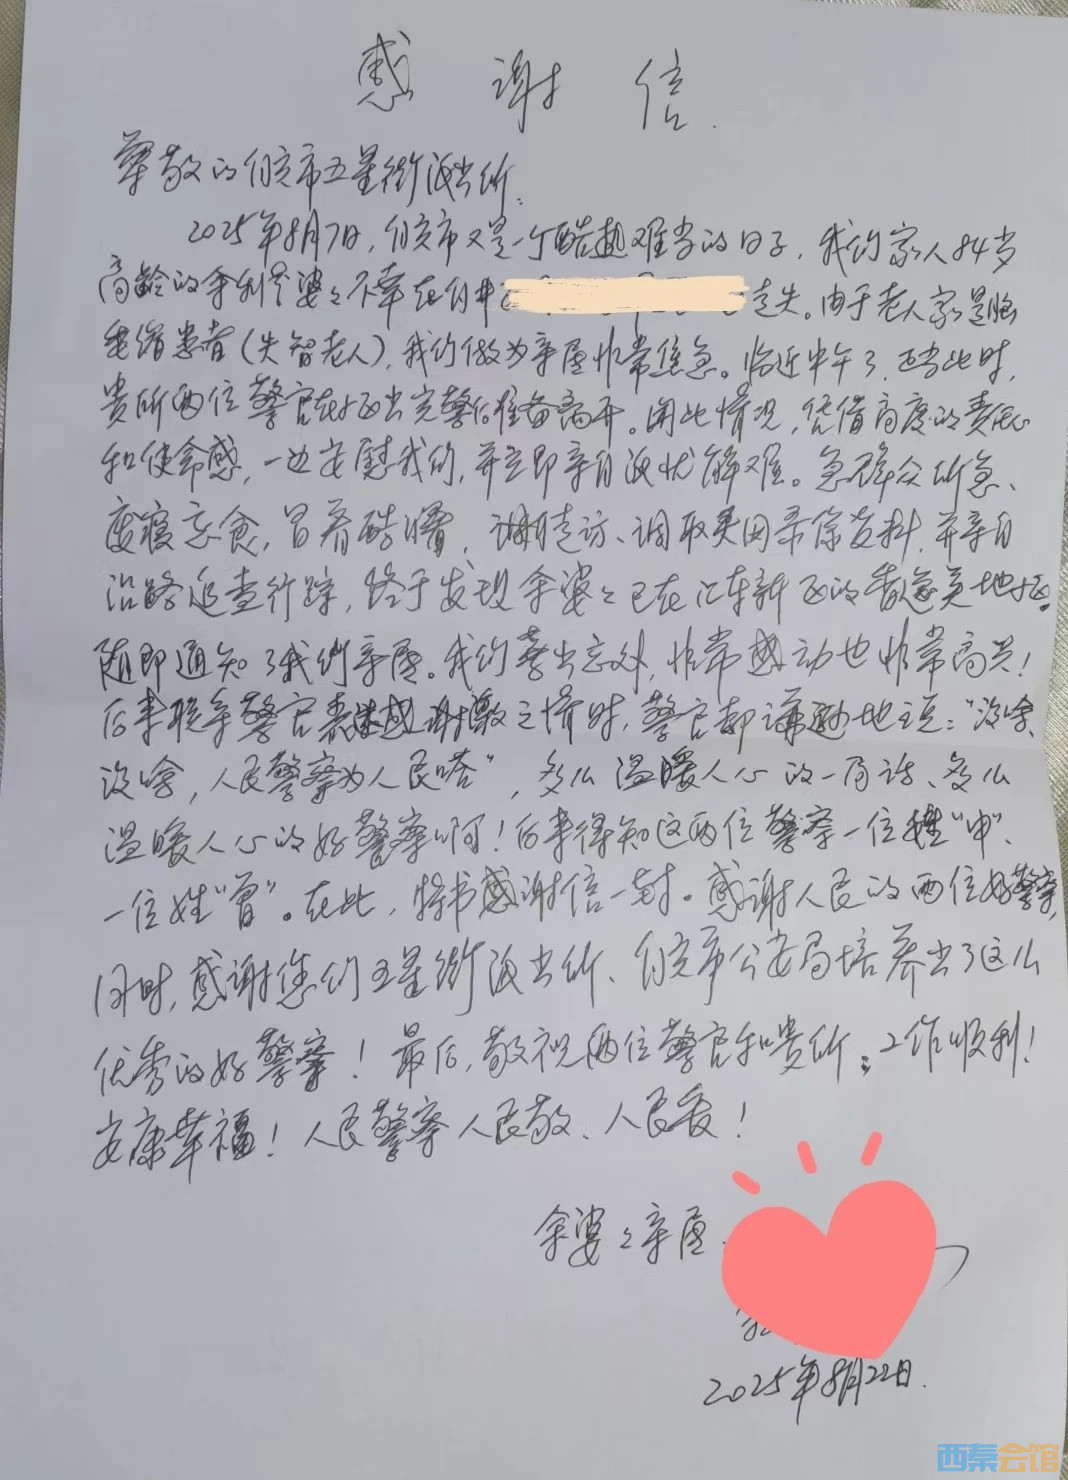 感谢信.
尊敬的自贡市五星街派出所:
2025年8月7日,自贡市又是一个酷热难当的日子,我们家人84岁
高龄的余利 婆婆不幸在自井 走失。由于老人家是脑
萎缩患者(失智老人),我们做为亲属非常焦急。临近中午了,正当此时,
贵所两位警官在 出完警后准备离开。闻此情况,凭借高度的责任心
和使命感,一边安慰我们,并立即亲自派忧解难。急群众所急、
废寝忘食,冒着酷暑, 走访、调取 录像资料,并亲自
沿路追查行踪,终于发现余婆婆已在汇东新区的 地段。
随即通知了我们亲属。我们喜出忘外,非常感动也非常高兴!
后来联系警官表达感谢激之情时,警官都谦逊地说:“没啥、
没啥,人民警察为人民嗒”,多么温暖人心的一句话、多么
温暖人心的好警察啊!后来得知这两位警察一位姓“中”、
一位姓“曾”。在此,特书感谢信一封。感谢人民的两位好警察,
同时,感谢您们五星街派出所、自贡市公安局培养出了这么
优秀的好警察!最后,敬祝两位警官和贵所:工作顺利!
安康幸福!人民警察人民敬、人民爱!
余婆婆亲属:
2025年8月22日.
西秦会馆